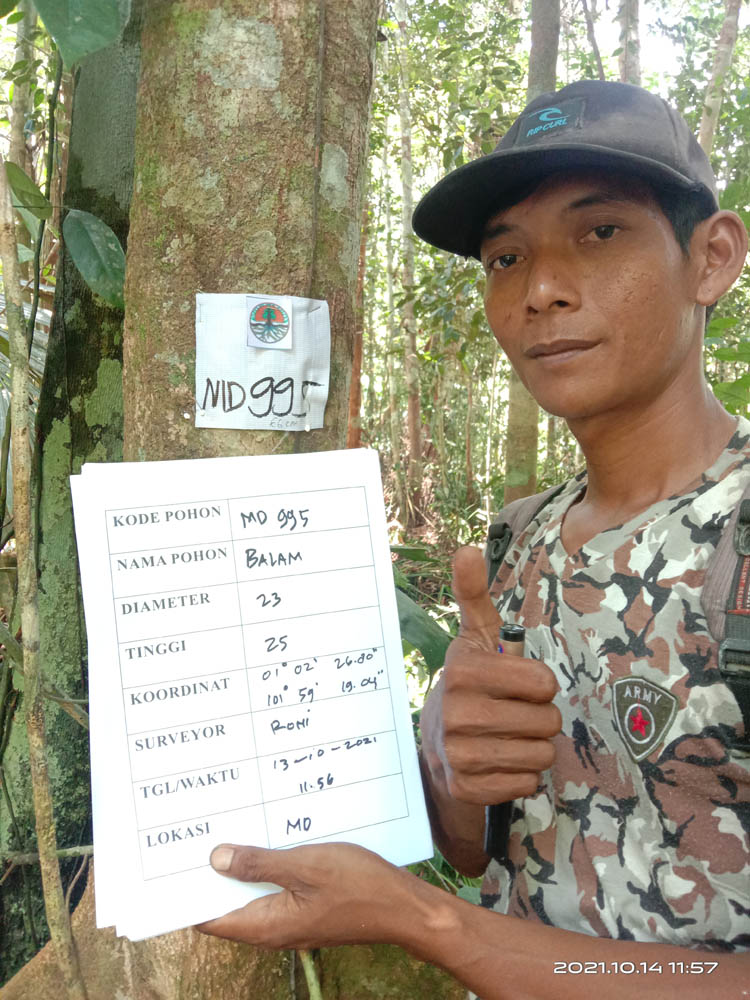 RIP CURL
MD 995
KODE POHON MD 995
NAMA POHON BALAM
DIAMETER 23
TINGGI 25
KOORDINAT 01° 02' 26.80"
101° 59' 19.04"
SURVEYOR RONI
TGL/WAKTU 13-10-2021
11.56
LOKASI MD
ARMY
2021.10.14 11:57